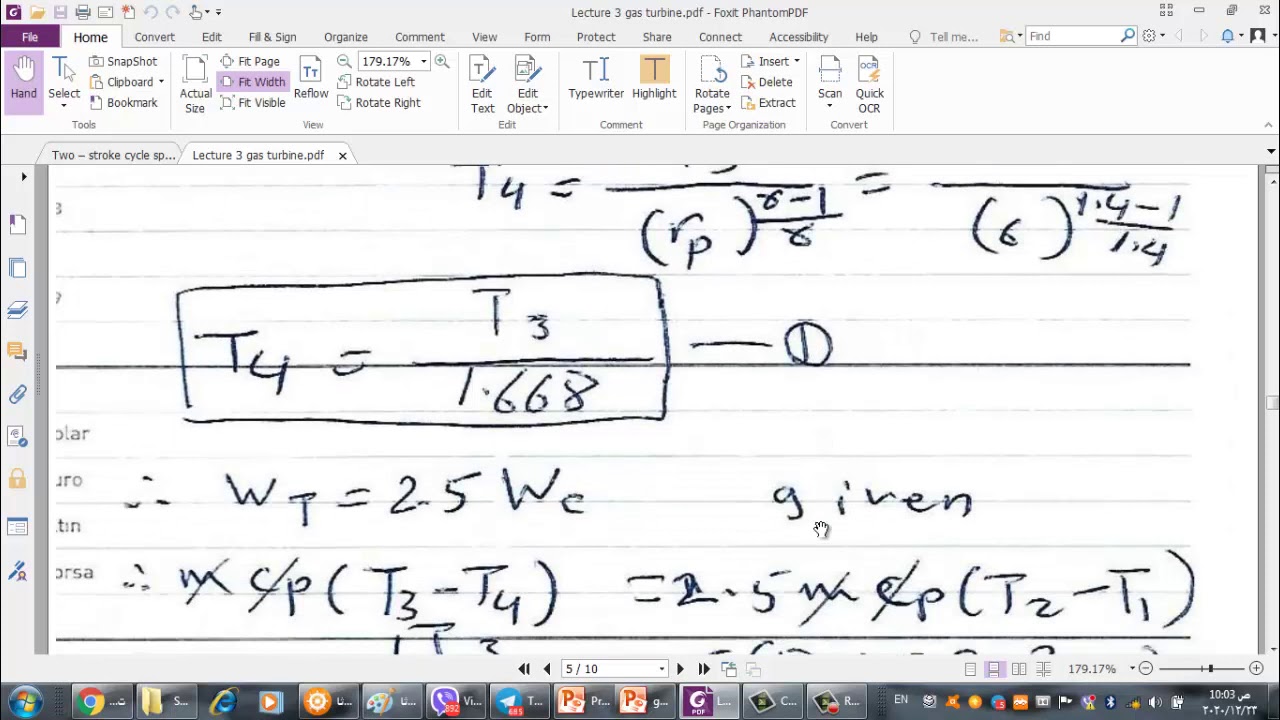 Lecture 3 gas turbine.pdf - Foxit PhantomPDF
File Home Convert Edit Fill & Sign Organize Comment View Form Protect Share Connect Accessibility Help Tell me... Find
Hand Select SnapShot Clipboard Bookmark Actual Size Fit Page Fit Width Fit Visible Reflow 179.17% Rotate Left Rotate Right Edit Text Edit Object Typewriter Highlight Rotate Pages Insert Delete Extract Scan Quick OCR
Tools View Edit Comment Page Organization Convert
Two – stroke cycle sp... Lecture 3 gas turbine.pdf
T4 = / (rp)^(γ-1/γ) = / (6)^(1.4-1/1.4)
T4 = T3 / 1.668 — ①
olar
∴ WT = 2.5 Wc given
uro
tin
orsa
∴ m cp (T3 - T4) = 2.5 m cp (T2 - T1)
5 / 10 179.17%
S... Vi... 892 T... 685 Pr... g... L... C... R... EN 10:03 ص
٢٠٢٠/١٢/٢٣